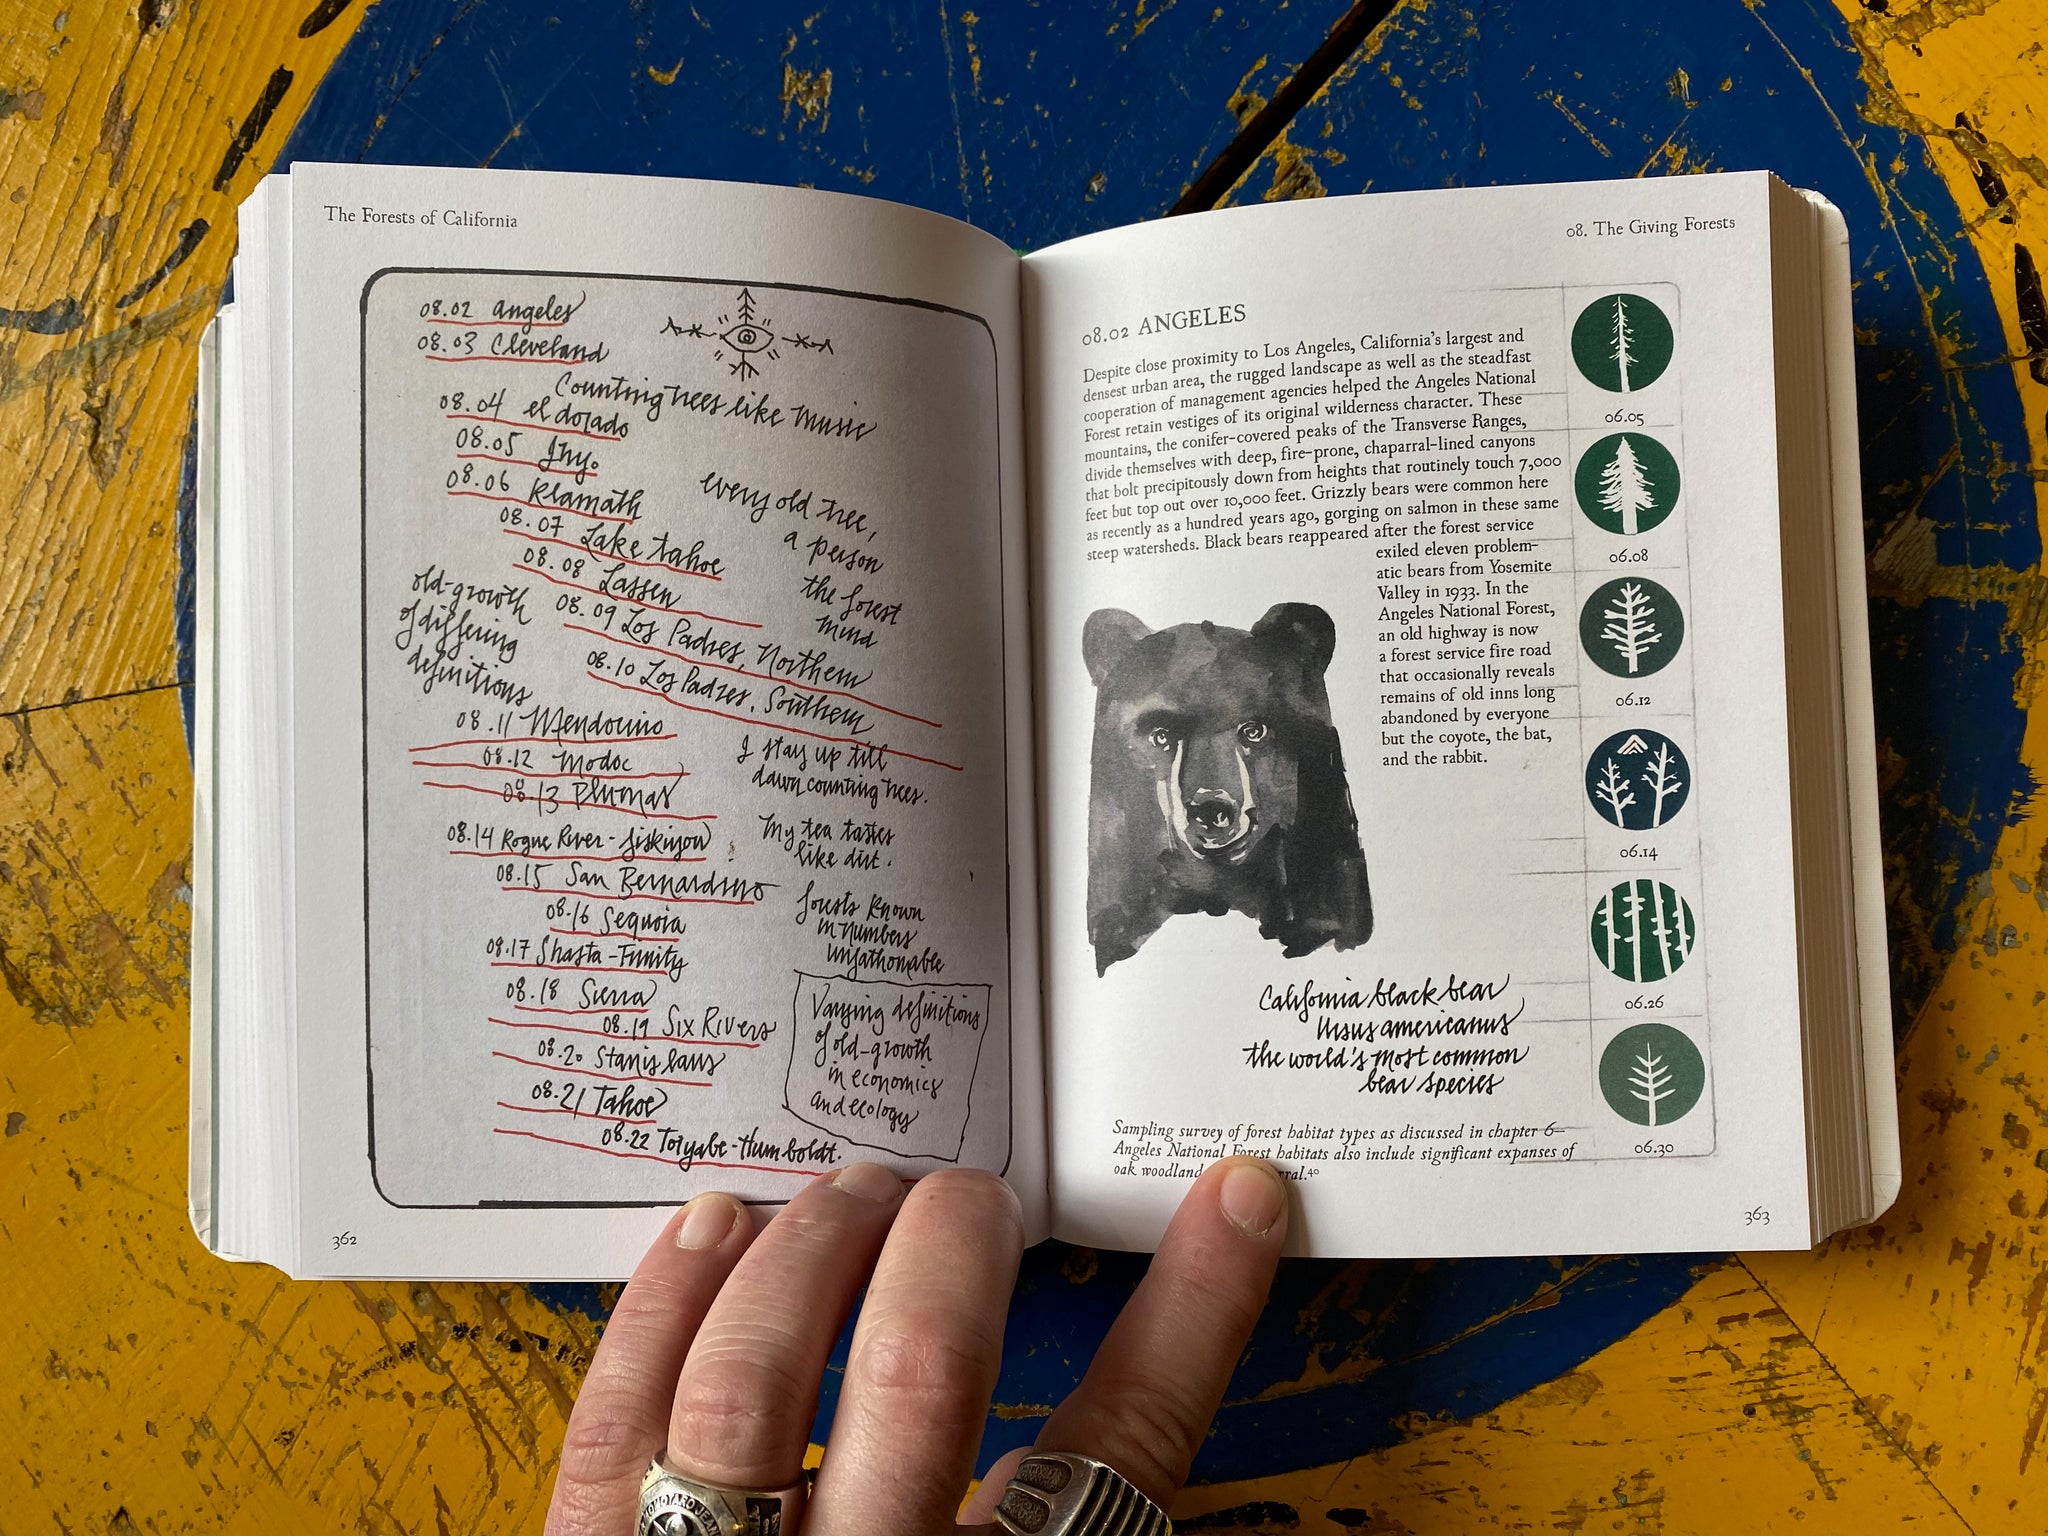 The Forests of California
08.02 Angeles
08.03 Cleveland
Counting trees like music
08.04 el dorado
08.05 Inyo
08.06 Klamath
every old tree,
a person
the forest
mind
08.07 Lake Tahoe
08.08 Lassen
old-growth
of differing
definitions
08.09 Los Padres, Northern
08.10 Los Padres, Southern
08.11 Mendocino
08.12 Modoc
08.13 Plumas
I stay up till
dawn counting trees.
My tea tastes
like dirt.
08.14 Rogue River - Siskiyou
08.15 San Bernardino
08.16 Sequoia
08.17 Shasta-Trinity
forests known
in numbers
unfathomable
08.18 Sierra
08.19 Six Rivers
08.20 Stanislaus
08.21 Tahoe
08.22 Toiyabe-Humboldt.
Varying definitions
of old-growth
in economics
and ecology
362
08. The Giving Forests
08.02 ANGELES
Despite close proximity to Los Angeles, California's largest and
densest urban area, the rugged landscape as well as the steadfast
cooperation of management agencies helped the Angeles National
Forest retain vestiges of its original wilderness character. These
mountains, the conifer-covered peaks of the Transverse Ranges,
divide themselves with deep, fire-prone, chaparral-lined canyons
that bolt precipitously down from heights that routinely touch 7,000
feet but top out over 10,000 feet. Grizzly bears were common here
as recently as a hundred years ago, gorging on salmon in these same
steep watersheds. Black bears reappeared after the forest service
exiled eleven problem-
atic bears from Yosemite
Valley in 1933. In the
Angeles National Forest,
an old highway is now
a forest service fire road
that occasionally reveals
remains of old inns long
abandoned by everyone
but the coyote, the bat,
and the rabbit.
California black bear
Ursus americanus
the world's most common
bear species
Sampling survey of forest habitat types as discussed in chapter 6—
Angeles National Forest habitats also include significant expanses of
oak woodland rral.40
06.05
06.08
06.12
06.14
06.26
06.30
363